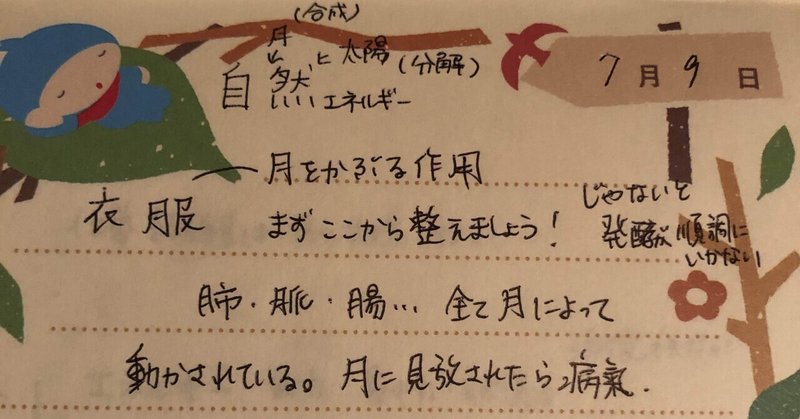 (合成)
月と太陽(分解)
自然 エネルギー
7月9日
月をかぶる作用
衣服 まずここから整えましょう!
じゃないと
発酵が順調に
いかない
肺・脈・腸… 全て月によって
動かされている。月に見放されたら病氣.